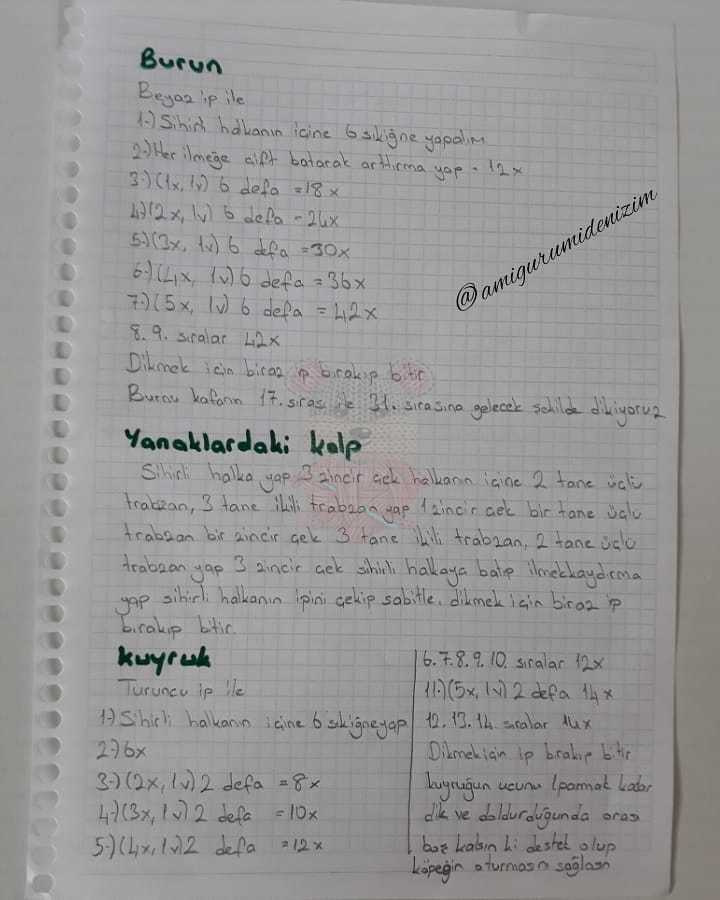 Burun
Beyaz ip ile
1-) Sihirli halkanın içine 6 sıkiğne yapalım
2-) Her ilmeğe çift batarak arttırma yap = 12x
3-) (1x, 1v) 6 defa = 18x
4-) (2x, 1v) 6 defa = 24x
5-) (3x, 1v) 6 defa = 30x
6-) (4x, 1v) 6 defa = 36x
7-) (5x, 1v) 6 defa = 42x
8. 9. sıralar 42x
Dikmek için biraz ip bırakıp bitir
Burnu kafanın 17. sırası ile 31. sırasına gelecek şekilde dikiyoruz
@amigurumidenizim
Yanaklardaki kalp
Sihirli halka yap 3 zincir çek halkanın içine 2 tane üçlü
trabzan, 3 tane ikili trabzan yap 1 zincir çek bir tane üçlü
trabzan bir zincir çek 3 tane ikili trabzan, 2 tane üçlü
trabzan yap 3 zincir çek sihirli halkaya batıp ilmekkaydırma
yap sihirli halkanın ipini çekip sabitle. dikmek için biraz ip
bırakıp bitir.
Kuyruk
Turuncu ip ile
1-) Sihirli halkanın içine 6 sıkiğne yap
2-) 6x
3-) (2x, 1v) 2 defa = 8x
4-) (3x, 1v) 2 defa = 10x
5-) (4x, 1v) 2 defa = 12x
6. 7. 8. 9. 10. sıralar 12x
11-) (5x, 1v) 2 defa 14x
12. 13. 14. sıralar 14x
Dikmek için ip bırakıp bitir
kuyruğun ucunu 1 parmak kadar
dik ve doldurduğunda orası
boş kalsın ki destek olup
köpeğin oturmasını sağlasın